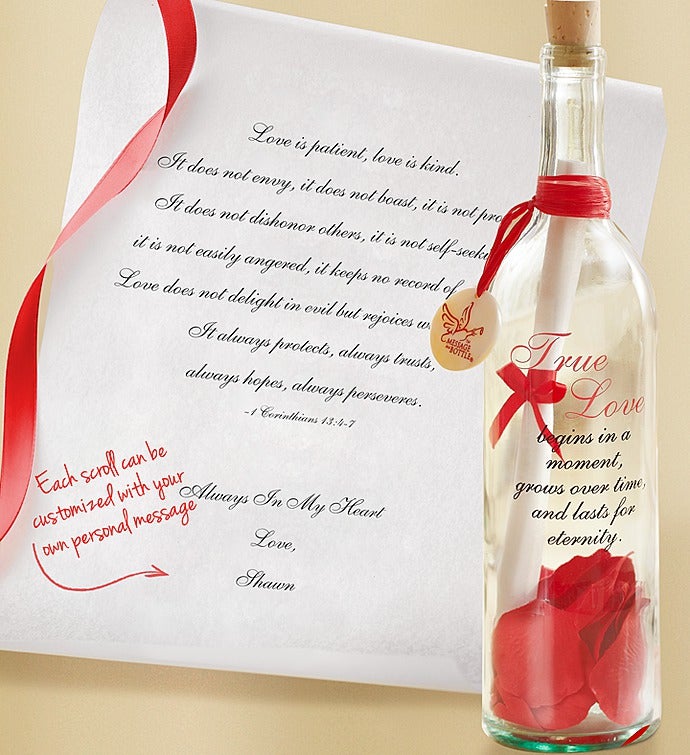 Love is patient, love is kind.
It does not envy, it does not boast, it is not pro
It does not dishonor others, it is not self-seek
it is not easily angered, it keeps no record of
Love does not delight in evil but rejoices w
It always protects, always trusts,
always hopes, always perseveres.
-1 Corinthians 13:4-7
Always In My Heart
Love,
Shawn
Each scroll can be
customized with your
own personal message
The
MESSAGE
in a BOTTLE®
True
Love
begins in a
moment,
grows over time,
and lasts for
eternity.